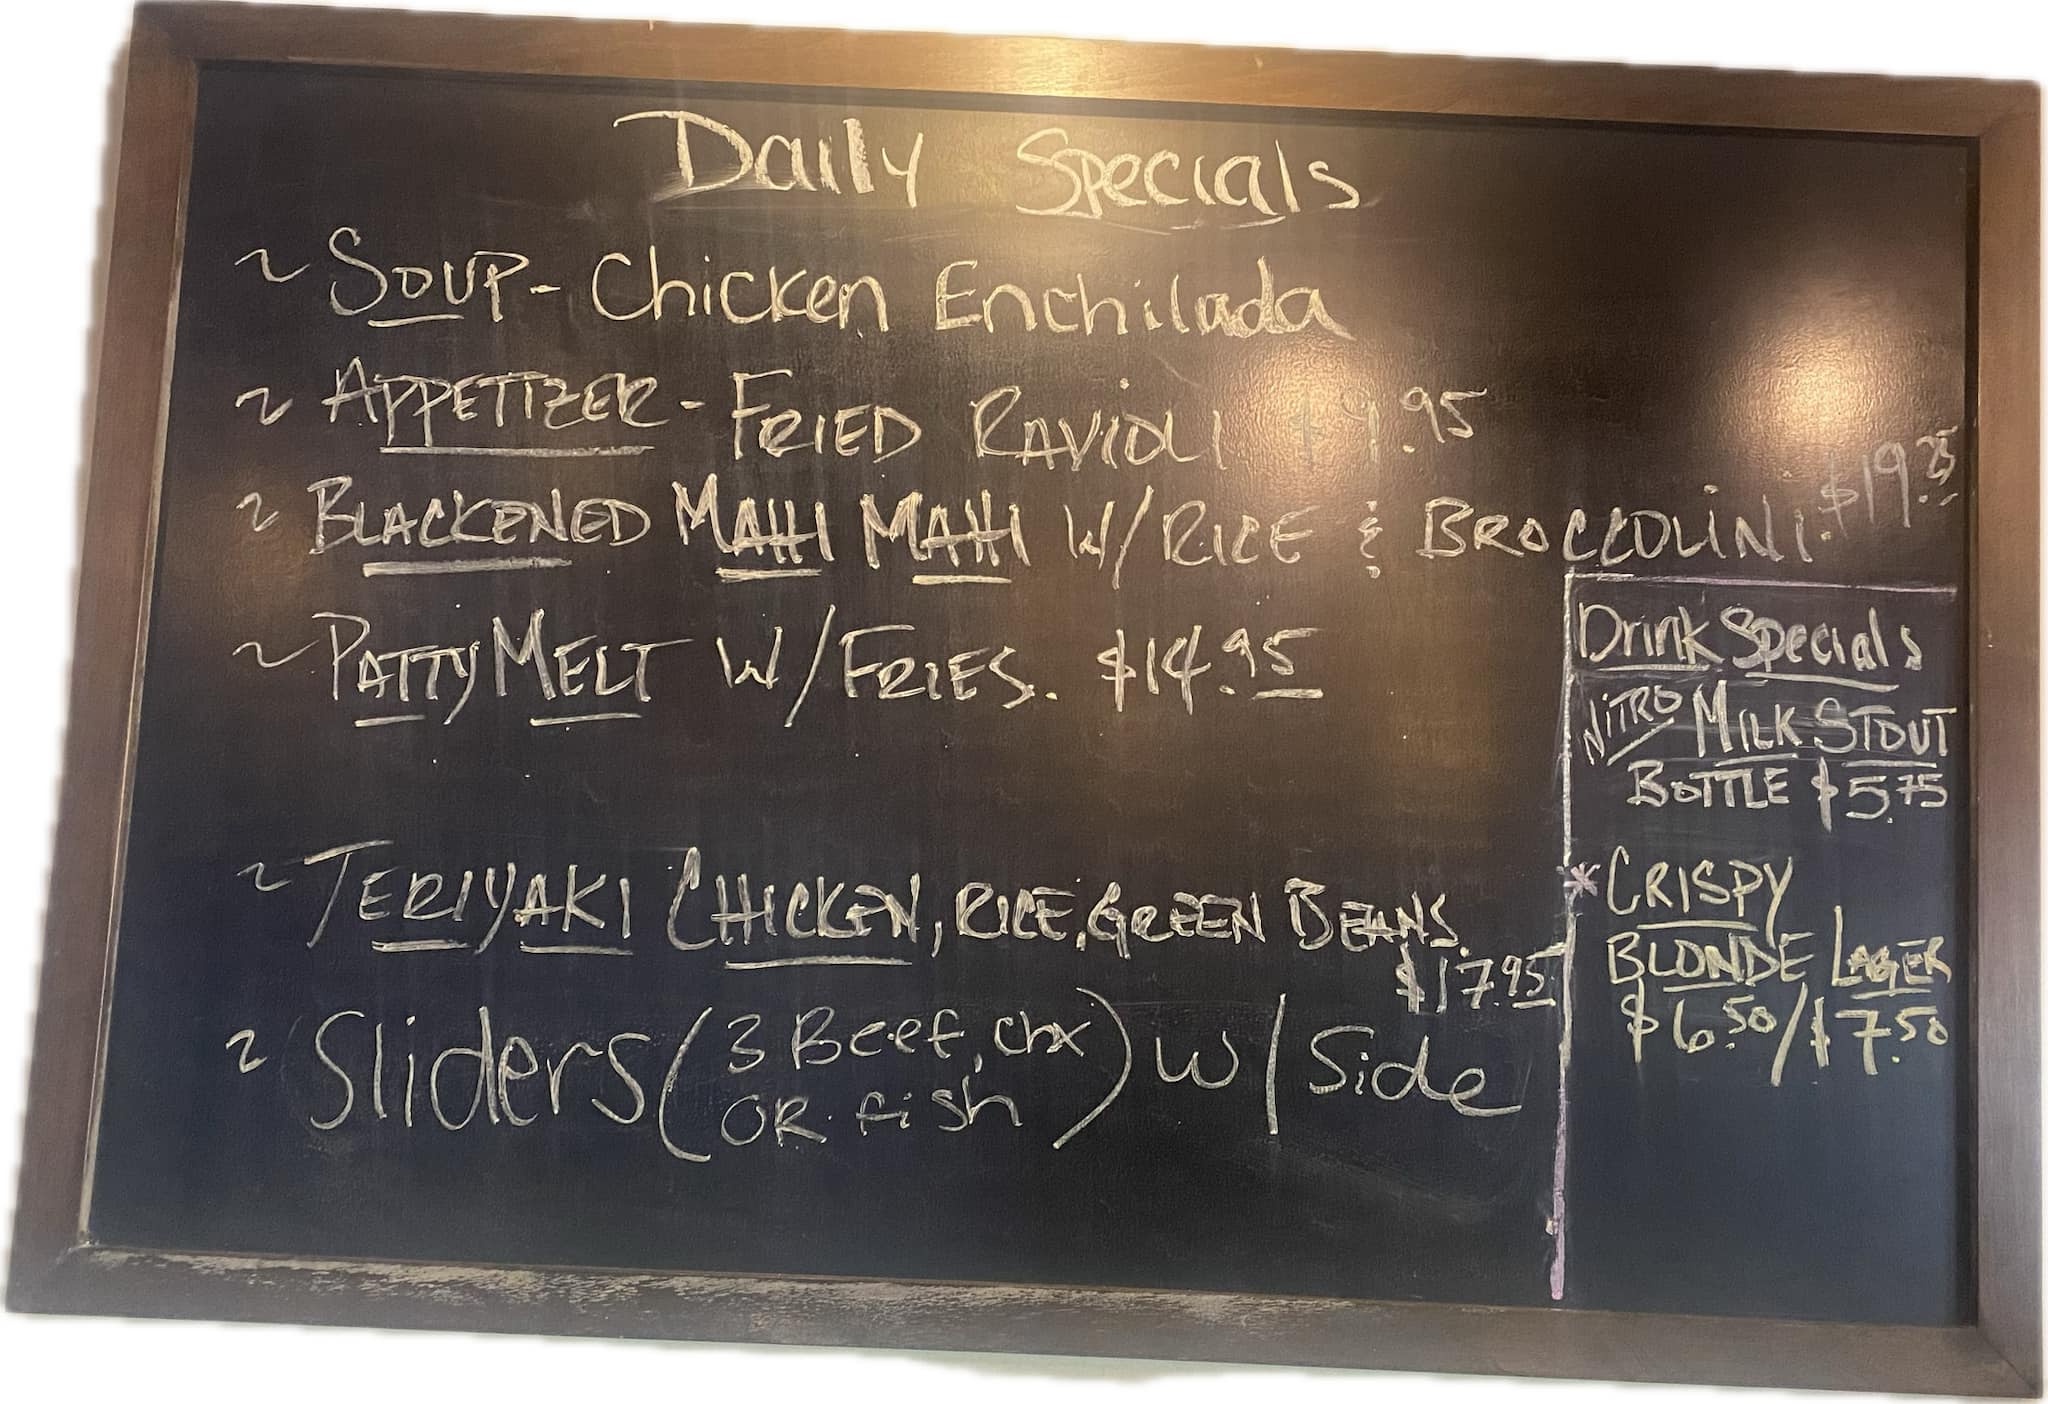 Daily Specials
~ Soup - Chicken Enchilada
~ APPETIZER - FRIED RAVIOLI $9.95
~ BLACKENED MAHI MAHI W/ RICE & BROCCOLINI. $19.25
~ PATTY MELT W/ FRIES. $14.95
~ TERIYAKI CHICKEN, RICE, GREEN BEANS.
$17.95
~ Sliders (3 Beef, chx
OR fish) w/ Side
Drink Specials
NITRO MILK STOUT
BOTTLE $5.75
* CRISPY
BLONDE LAGER
$6.50/$7.50